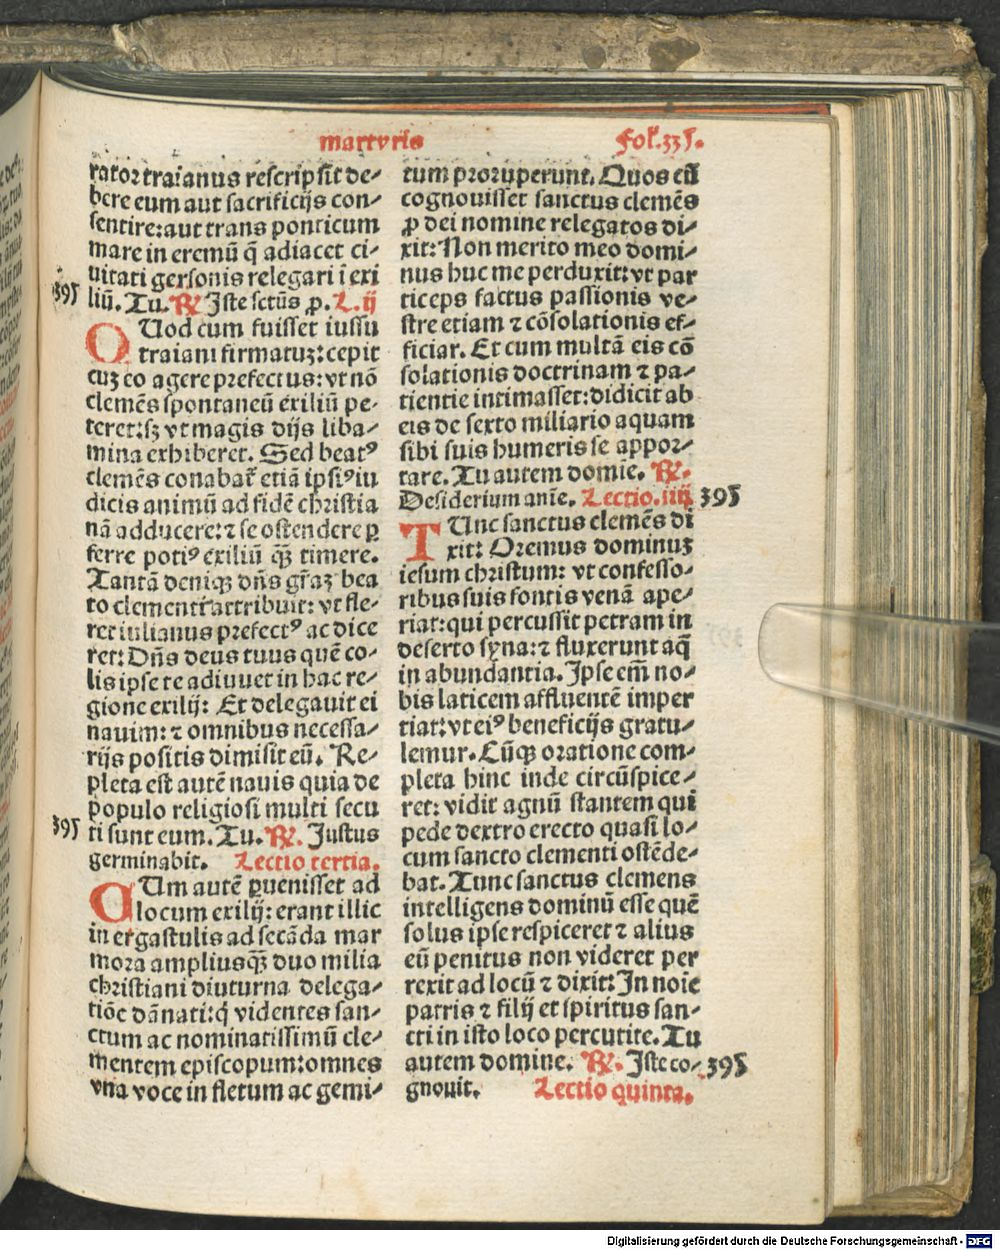 martyris
Fol. 335.
rator traianus rescripsit de-
bere eum aut sacrificijs con-
sentire: aut trans ponticum
mare in eremū q̄ adiacet ci-
uitati gersonis relegari ī exi
395
liū. Tu. ℞ Iste sctūs p̄. L. ij
QUod cum fuisset iussu
traiani firmatuꝫ: cepit
cuꝫ eo agere prefectus: vt nō
clemēs spontaneū exiliū pe-
teret: sꝫ vt magis dijs liba-
mina exhiberet. Sed beatꝰ
clemēs conabat̄ etiā ipsiꝰ iu
dicis animū ad fidē christia
nā adducere: ⁊ se ostendere p̄
ferre potiꝰ exiliū qꝫ̄ timere.
Tantā deniqꝫ dn̄s gr̄aꝫ bea
to clementi attribuit: vt fle-
ret iulianus prefectꝰ ac dice
ret: Dn̄s deus tuus quē co-
lis ipse te adiuuet in hac re-
gione exilij: Et delegauit ei
nauim: ⁊ omnibus necessa-
rijs positis dimisit eū. Re-
pleta est autē nauis quia de
populo religiosi multi secu
395
ti sunt eum. Tu. ℞. Justus
germinabit. Lectio tertia.
CUm autē ꝑuenisset ad
locum exilij: erant illic
in ergastulis ad secāda mar
mora ampliusqꝫ̄ duo milia
christiani diuturna delega-
tiōe dānati: q̇ videntes san-
ctum ac nominatissimū cle-
mentem episcopum: omnes
vna voce in fletum ac gemi-
tum proruperunt. Quos cū
cognouisset sanctus clemēs
ꝓ dei nomine relegatos di-
xit: Non merito meo domi-
nus huc me perduxit: vt par
ticeps factus passionis ve-
stre etiam ⁊ cōsolationis ef-
ficiar. Et cum multā eis cō
solationis doctrinam ⁊ pa-
tientie intimasset: didicit ab
eis de sexto miliario aquam
sibi suis humeris se appor-
tare. Tu autem domīe. ℞.
Desiderium anīe. Lectio. iiij 395
TUnc sanctus clemēs di
xit: Oremus dominuꝫ
iesum christum: vt confesso-
ribus suis fontis venā ape-
riat: qui percussit petram in
deserto syna: ⁊ fluxerunt aq̄
in abundantia. Ipse em̄ no-
bis laticem affluentē imper
tiat: vt eiꝰ beneficijs gratu-
lemur. Cūqꝫ oratione com-
pleta hinc inde circūspice-
ret: vidit agnū stantem qui
pede dextro erecto quasi lo-
cum sancto clementi ostēde-
bat. Tunc sanctus clemens
intelligens dominū esse quē
solus ipse respiceret ⁊ alius
eū penitus non videret per
rexit ad locū ⁊ dixit: In noīe
patris ⁊ filij et spiritus san-
cti in isto loco percutite. Tu
autem domine. ℞. Iste co- 395
gnouit. Lectio quinta.
Digitalisierung gefördert durch die Deutsche Forschungsgemeinschaft - DFG